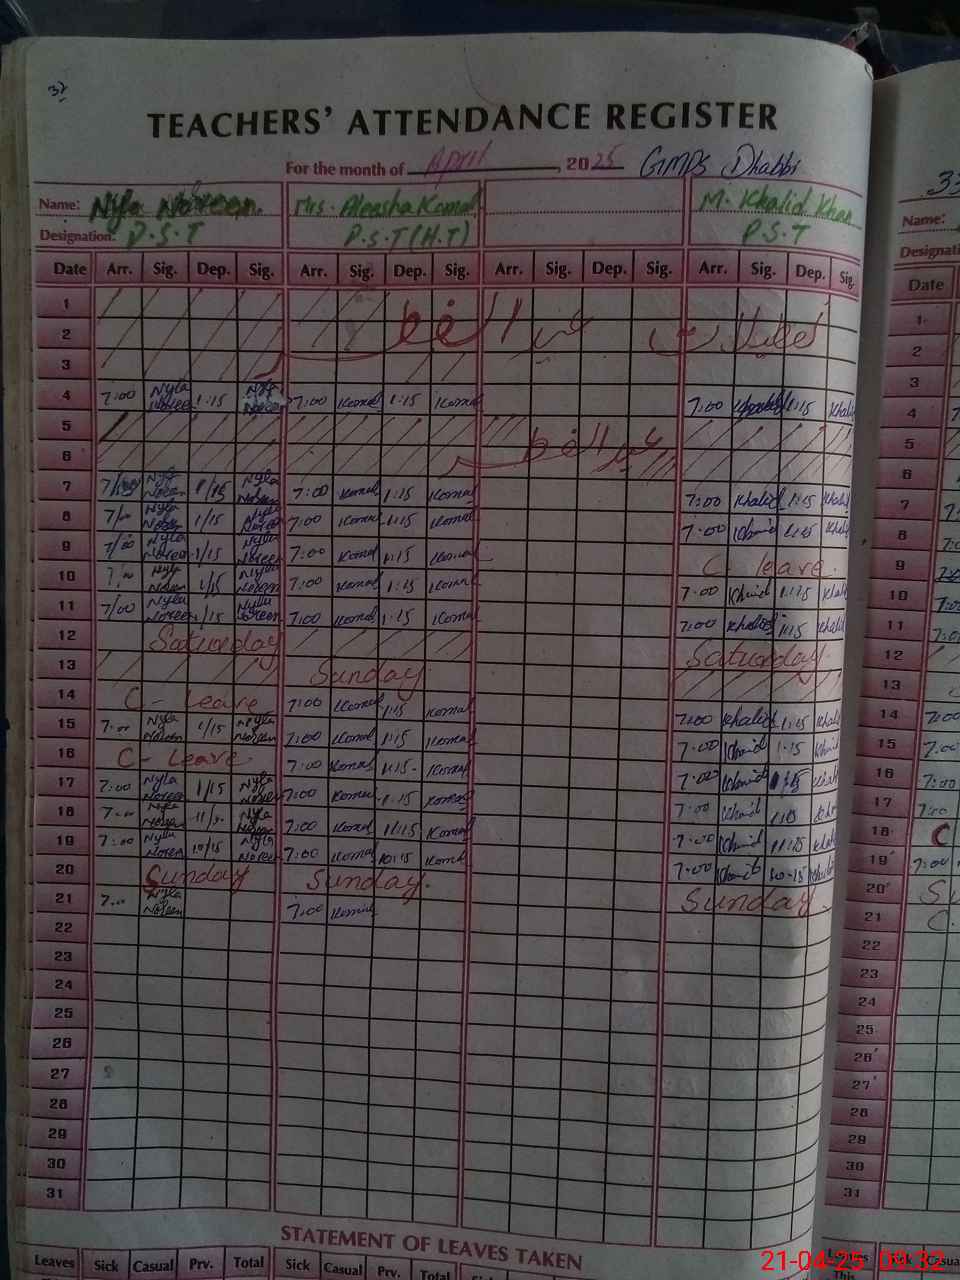 37
TEACHERS' ATTENDANCE REGISTER
For the month of April, 2025 GMPS Dhabbi
Name: Nyla Noreen. Mrs. Aleesha Komal M. Khalid Khan
Designation: P.S.T P.S.T (H.T) P.S.T
Date Arr. Sig. Dep. Sig. Arr. Sig. Dep. Sig. Arr. Sig. Dep. Sig. Arr. Sig. Dep. Sig.
1
2 تعطیلات عید الفطر
3
4 7:00 Nyla Noreen 1:15 Nyla Noreen 7:00 Komal 1:15 Komal 7:00 Khalid 1:15 Khalid
5
6 عید الفطر
7 Nyla Noreen 1/15 Nyla Noreen 7:00 Komal 1:15 Komal 7:00 Khalid 1:15 Khalid
8 7/00 Nyla Noreen 1/15 Nyla Noreen 7:00 Komal 1:15 Komal 7:00 Khalid 1:15 Khalid
9 7/00 Nyla Noreen 1/15 Nyla Noreen 7:00 Komal 1:15 Komal C- leave.
10 Nyla Noreen 1/15 Nyla Noreen 7:00 Komal 1:15 Komal 7:00 Khalid 1:15 Khalid
11 7/00 Nyla Noreen 1/15 Nyla Noreen 7:00 Komal 1:15 Komal 7:00 Khalid 1:15 Khalid
12 Saturday Saturday.
13 Sunday
14 C- Leave 7:00 Komal 1:15 Komal 7:00 Khalid 1:15 Khalid
15 7:00 Nyla Noreen 1/15 Nyla Noreen 7:00 Komal 1:15 Komal 7:00 Khalid 1:15 Khalid
16 C- Leave 7:00 Komal 1:15 Komal 7:00 Khalid 1:15 Khalid
17 7:00 Nyla Noreen 1/15 Nyla Noreen 7:00 Komal 1:15 Komal 7:00 Khalid
18 Nyla Noreen Nyla Noreen 7:00 Komal 11:15 Komal 7:00 Khalid 11:15 Khalid
19 7:00 Nyla Noreen 10/15 Nyla Noreen 7:00 Komal 10:15 Komal 7:00 Khalid 10:15 Khalid
20 Sunday Sunday. Sunday
21 Nyla Noreen 7:00 Komal
22
23
24
25
26
27
28
29
30
31
STATEMENT OF LEAVES TAKEN
Leaves Sick Casual Prv. Total Sick Casual Prv. Total
33
Name:
Designati
Date
1
2
3
4
5
6
7
8
9
10
11
12
13
14 7:00
15 7:00
16 7:00
17 7:00
18 C
19 7:00
20 Su
21 C.
22
23
24
25
26
27
28
29
30
31
Leaves Sick
This
21-04-25 09:32